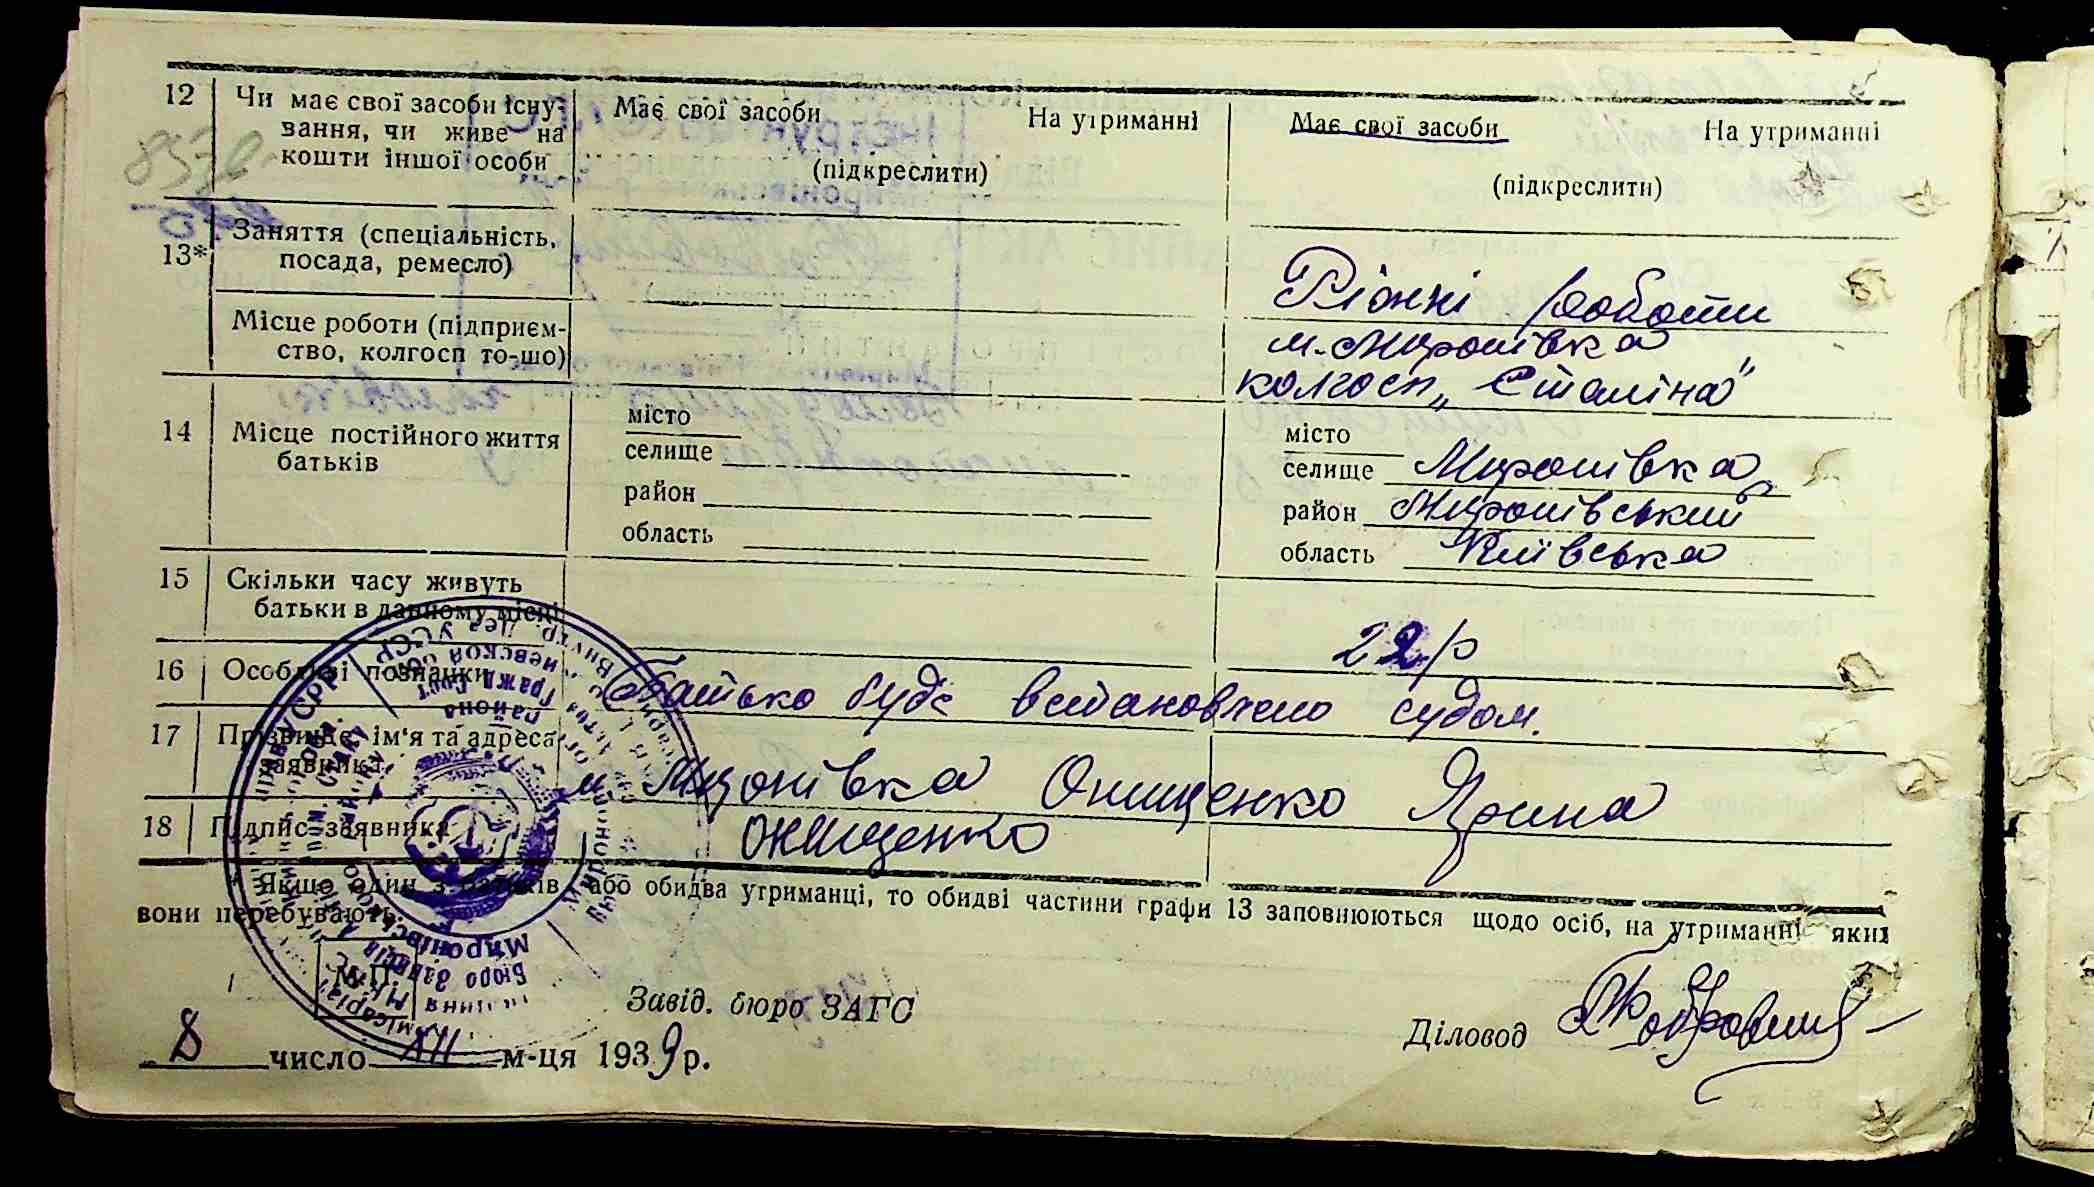 12 Чи має свої засоби існу- Має свої засоби На утриманні Має свої засоби На утриманні
вання, чи живе на
кошти іншої особи (підкреслити) (підкреслити)
13* Заняття (спеціальність, посада, ремесло) Ріжні роботи
Місце роботи (підприєм- м. Миронівка
ство, колгосп то-що) колгосп „Сталіна"
14 Місце постійного життя місто місто
батьків селище селище Миронівка
район район Миронівський
область область Київська
15 Скільки часу живуть
батьки в данному місці 22 р
16 Особливі познаки Батько буде встановлено судом.
17 Прізвище, ім'я та адреса
заявника м Миронівка Онищенко Ярина
18 Підпис заявника Онищенко
* Якщо один з батьків або обидва утриманці, то обидві частини графи 13 заповнюються щодо осіб, на утриманні яких
вони перебувають.
М.П.
Завід. бюро ЗАГС
Діловод
8 число XII м-ця 1939 р.